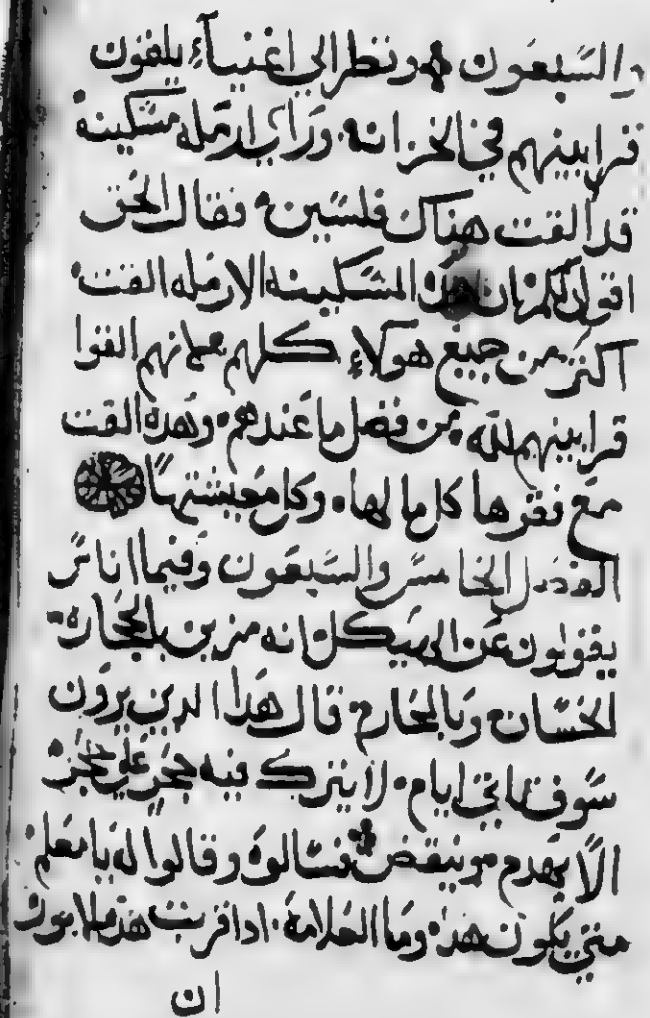 والسبعون ونظر الي اغنيآء يلقون
قرابينهم في الخزانه. وراي ارمله مسكينه
قد القت هناك فلسين. فقال الحق
اقول لكم ان هذه المسكينه الارمله القت
اكثر من جميع هولاء كلهم جميعهم القوا
قرابينهم لله من فضل ما عندهم. وهذه القت
مع فقرها كل ما لها. وكل معيشتها
الفصل الخامس والسبعون وفيما اناس
يقولون عن الهيكل انه مزين بالحجاره
الحسان وبالمحارم. قال هذا الدين يرون
سوف تاتي ايام. لا يترك فيه حجر علي حجر
الا يهدم وينقض فسالوه وقالوا له يا معلم
متي يكون هذه. وما العلامه. ادا قربت هذه
ان